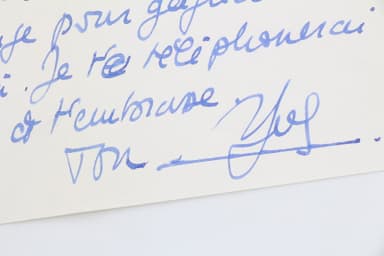 pour
i. Je te téléphonerai
et t'embrasse.
Ton Yves